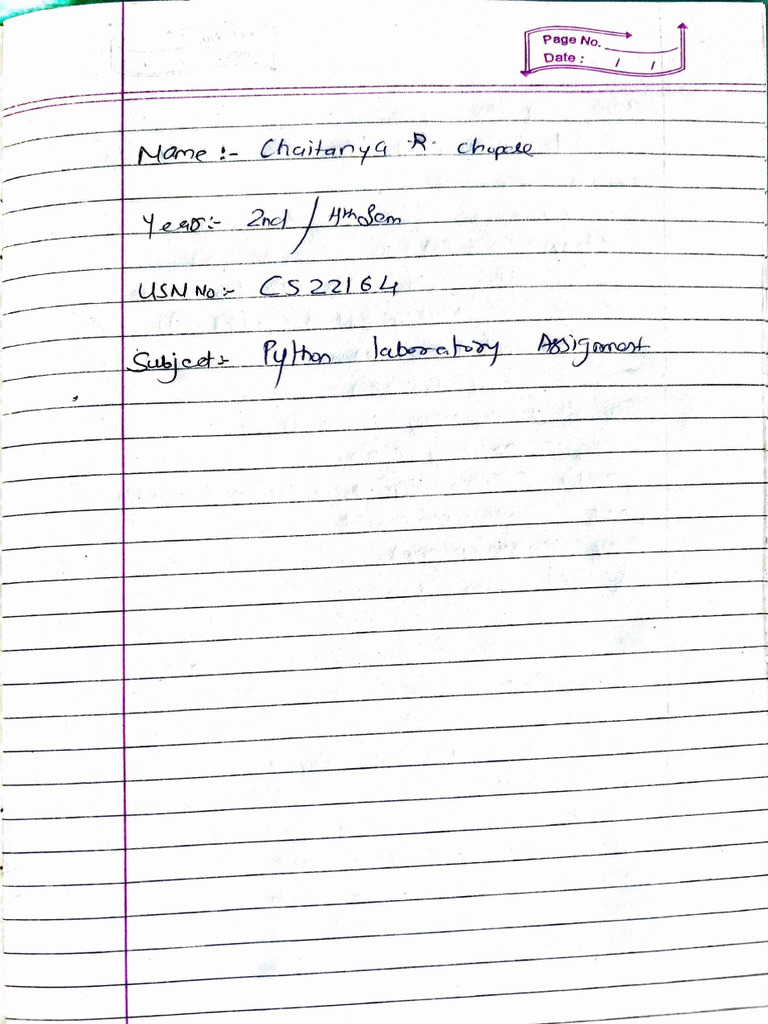 Page No.
Date : / /
Name :- Chaitanya R. Chopde
Year:- 2nd / 4th Sem
USN No:- CS22164
Subject:- Python laboratory Assignment